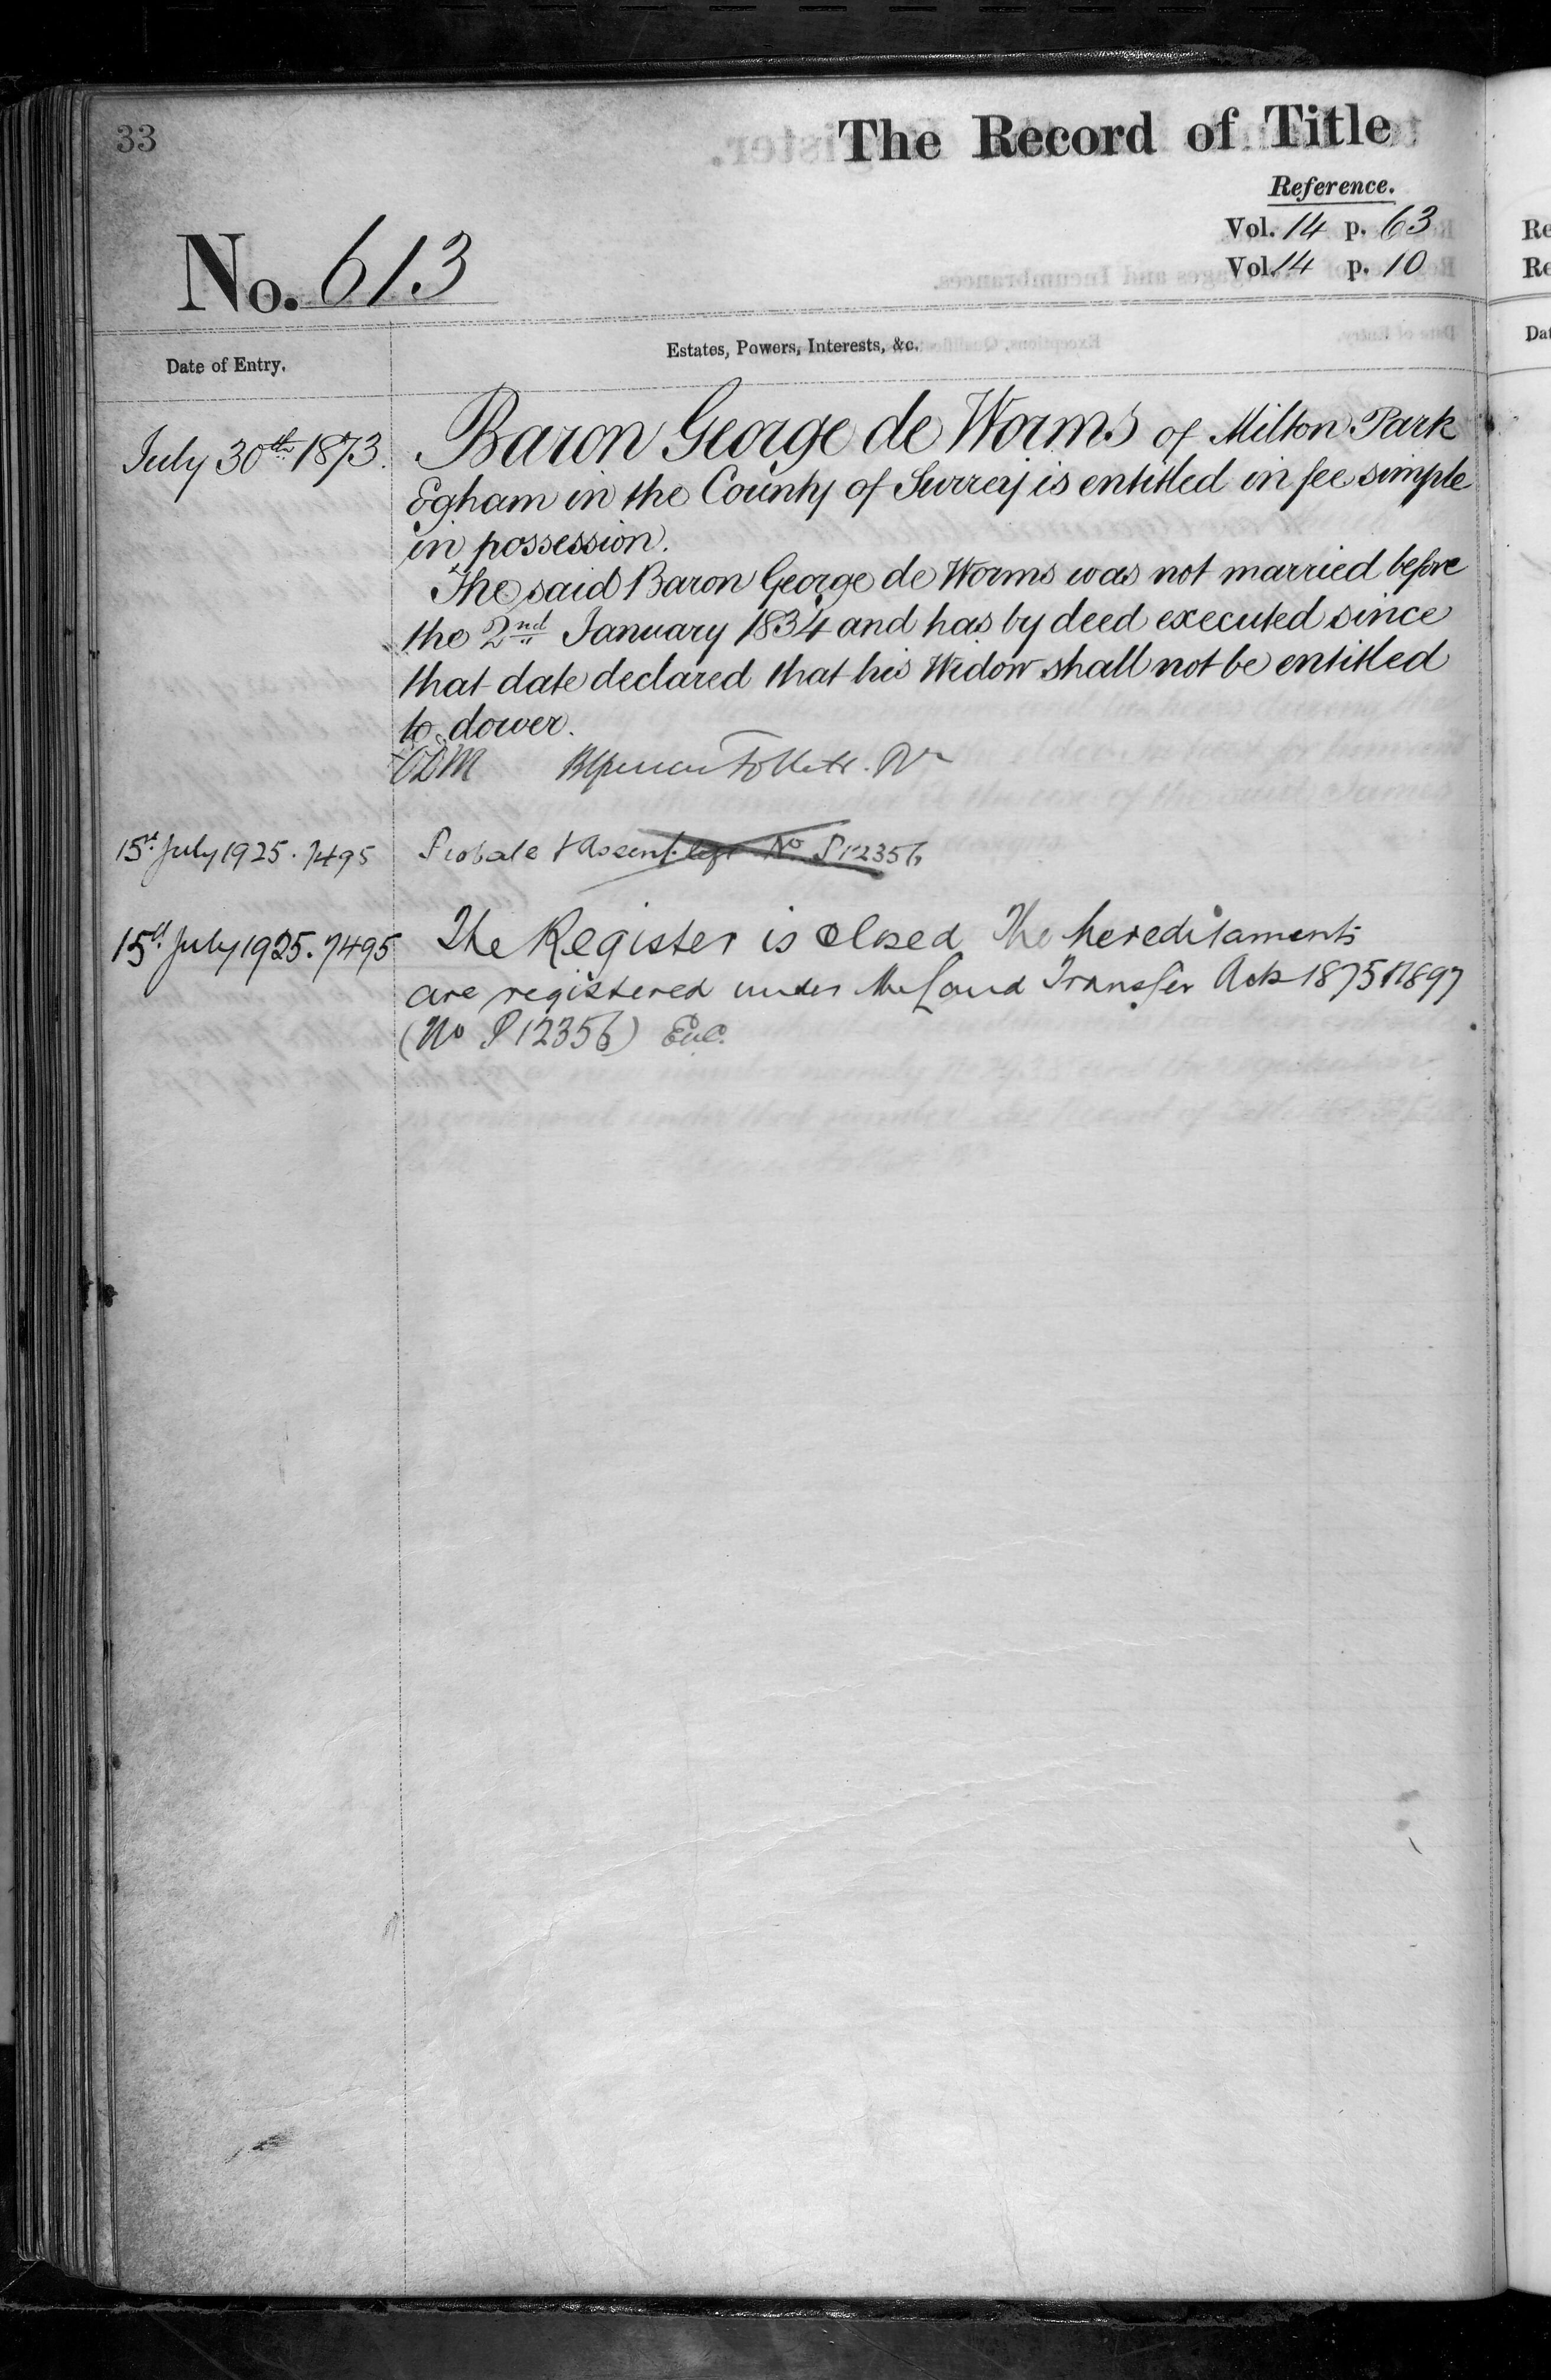 33
The Record of Title
Reference.
Vol. 14 p. 63
Vol. 14 p. 10
No. 613
Date of Entry.
Estates, Powers, Interests, &c.
July 30th 1873.
Baron George de Worms of Milton Park
Egham in the County of Surrey is entitled in fee simple
in possession.
The said Baron George de Worms was not married before
the 2nd January 1834 and has by deed executed since
that date declared that his Widow shall not be entitled
to dower.
Follett
15th July 1925. 7495
Probate & Assent No P12356
15th July 1925. 7495
The Register is closed The hereditaments
are registered under the Land Transfer Acts 1875 & 1897
(No P12356)
Re
Re
Dat